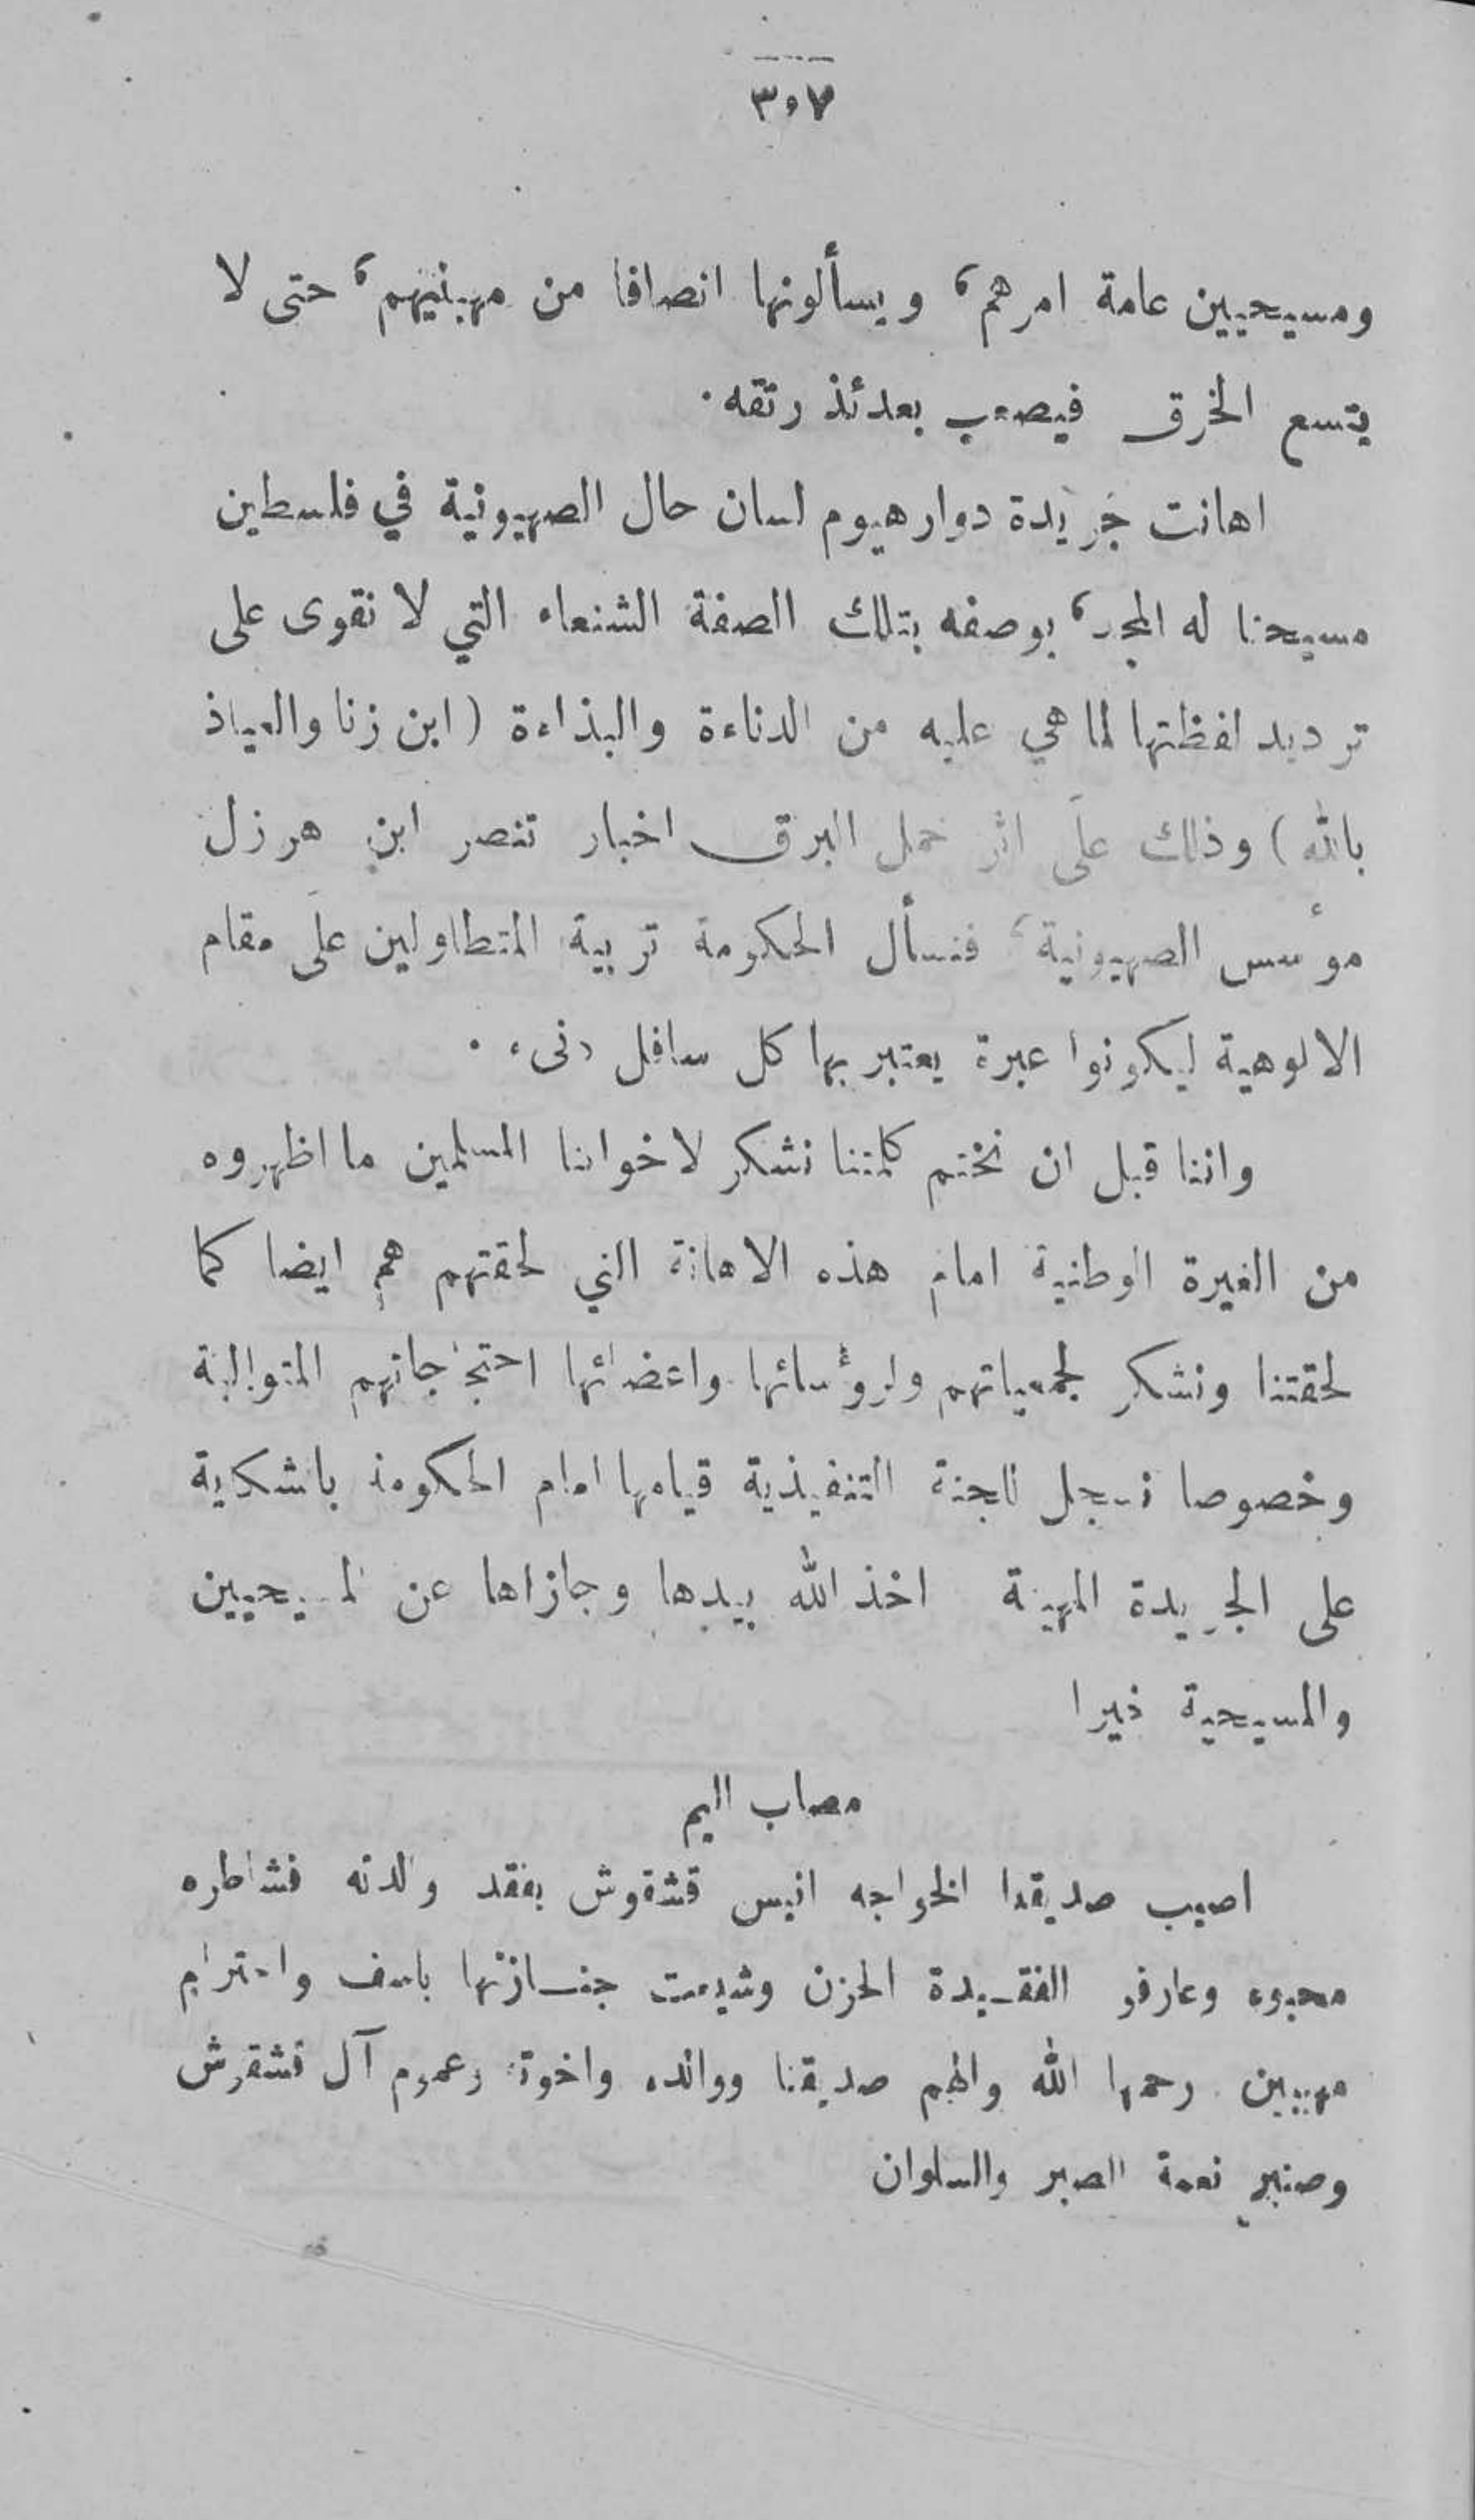 ٣٠٧
ومسيحيين عامة امرهم، ويسألونها انصافا من مهينيهم، حتى لا
يتسع الخرق فيصعب بعدئذ رتقه.
اهانت جريدة دوار هيوم لسان حال الصهيونية في فلسطين
مسيحنا له المجد، بوصفه بتلك الصفة الشنعاء التي لا نقوى على
ترديد لفظتها لما هي عليه من الدناءة والبذاءة (ابن زنا والعياذ
بالله) وذلك على اثر حمل البرق اخبار تنصر ابن هرزل
مؤسس الصهيونية، فنسأل الحكومة تربية المتطاولين على مقام
الالوهية ليكونوا عبرة يعتبر بها كل سافل دنيء.
واننا قبل ان نختم كلمتنا نشكر لاخواننا المسلمين ما اظهروه
من الغيرة الوطنية امام هذه الاهانة التي لحقتهم هم ايضا كما
لحقتنا ونشكر لجمعياتهم ولرؤسائها واعضائها احتجاجاتهم المتوالية
وخصوصا نسجل للجنة التنفيذية قيامها امام الحكومة بالشكاية
على الجريدة المهينة اخذ الله بيدها وجازاها عن المسيحيين
والمسيحية خيرا
مصاب اليم
اصيب صديقنا الخواجه انيس قشقوش بفقد والدته فشاطره
محبوه وعارفو الفقيدة الحزن وشيعت جنازتها باسف واحترام
مهيبين رحمها الله والهم صديقنا ووالده واخوته وعموم آل قشقوش
وصنبر نعمة الصبر والسلوان